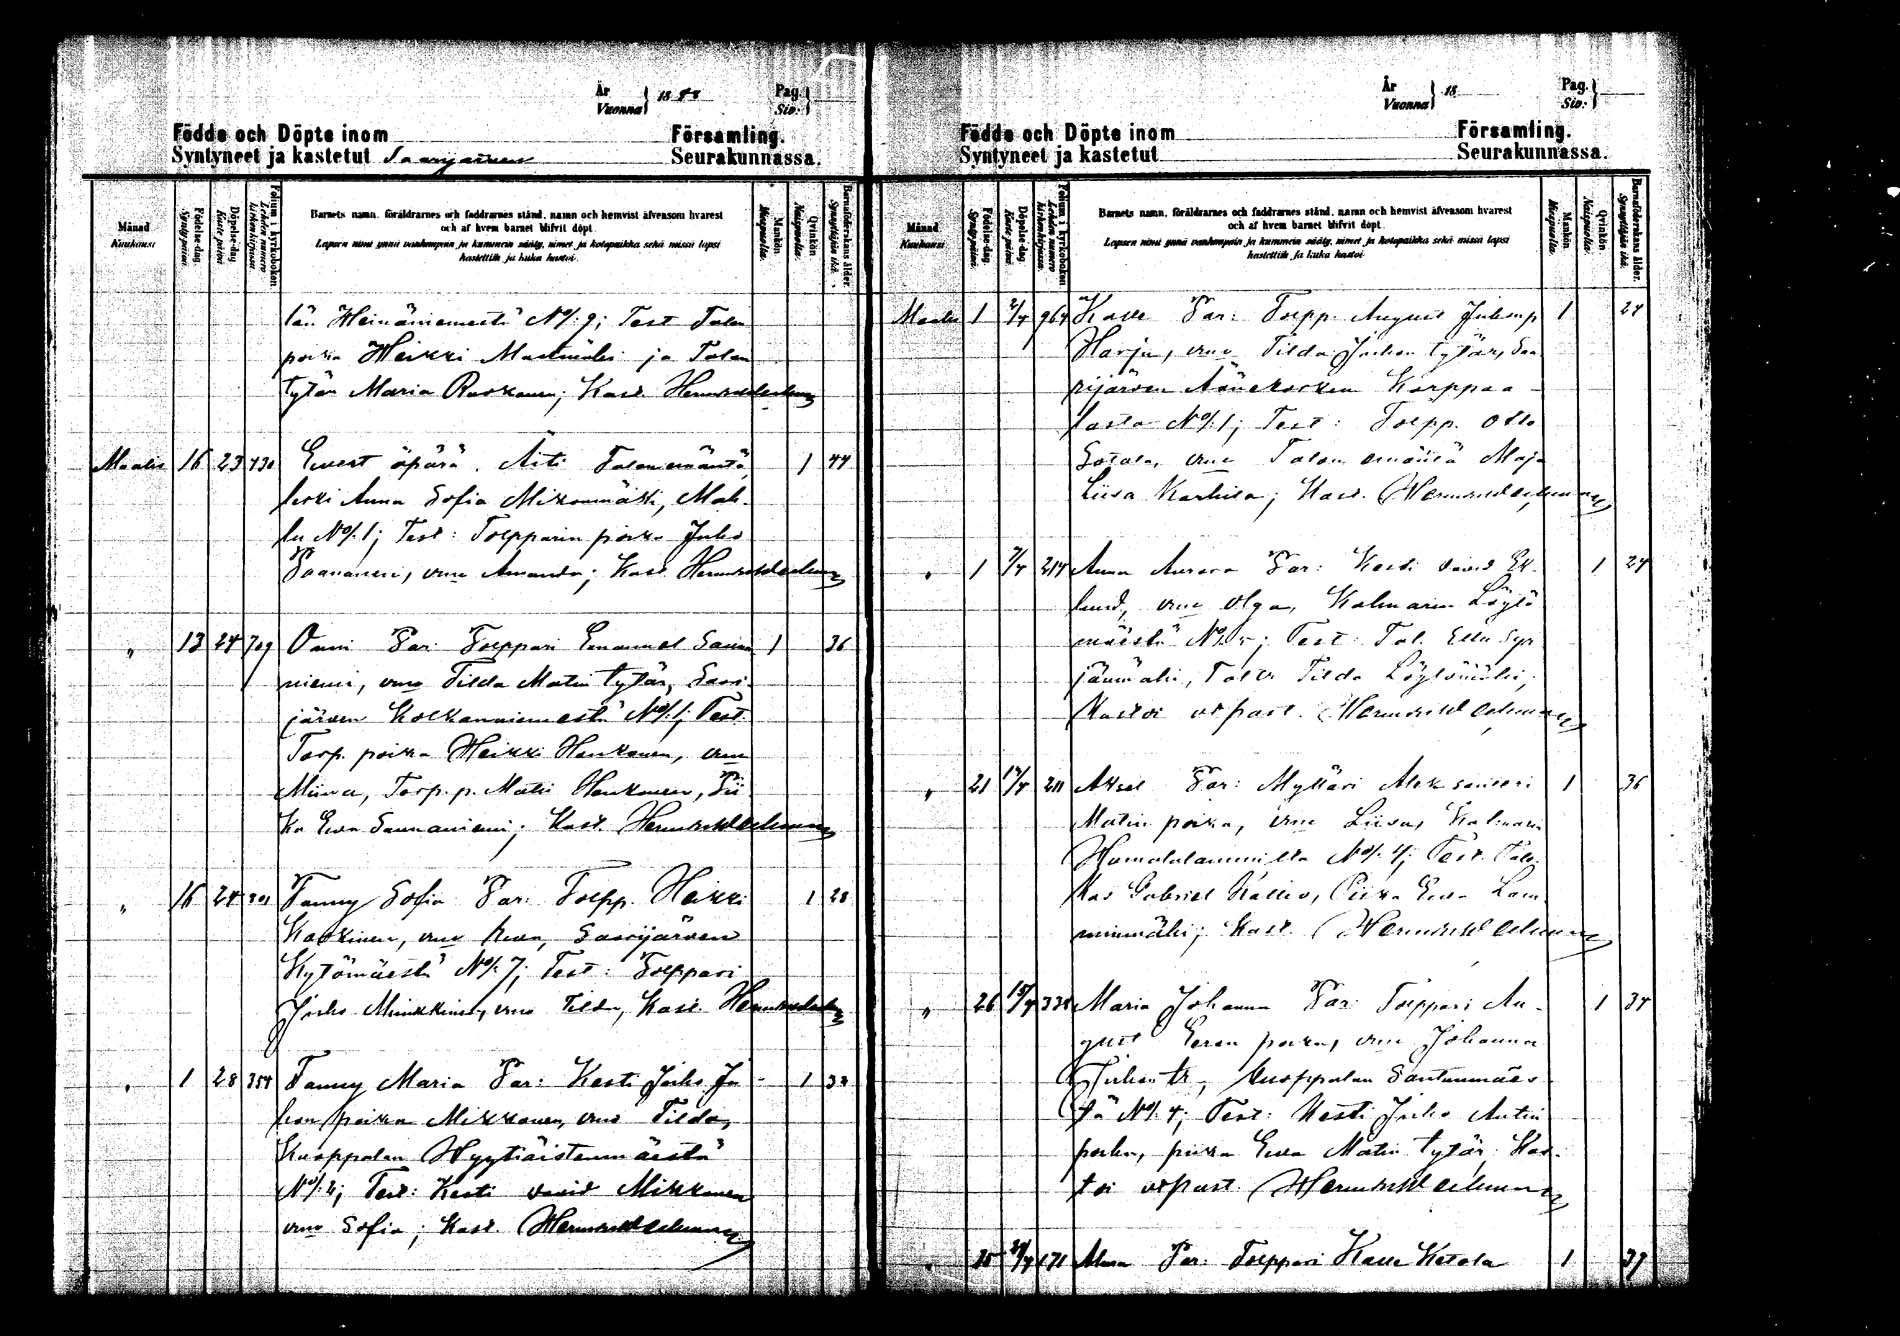 År
Vuonna } 1888
Pag.
Siv. }
Födde och Döpte inom Församling.
Syntyneet ja kastetut Saarijärven Seurakunnassa.
Månad
Kuukausi
Födelse-dag.
Syntypäivä.
Döpelse-dag
Kaste päivä
Folium i kyrkoboken
Lehden numero kirkonkirjassa.
Barnets namn, föräldrarnes och faddrarnes stånd, namn och hemvist äfvensom hvarest
och af hvem barnet blifvit döpt.
Lapsen nimi ynnä vanhempain ja kummein sääty, nimet ja kotopaikka sekä missä lapsi
kastettiin ja kuka kastoi.
Mankön
Miespuolta.
Qvinkön
Naispuolta.
Barnföderskans ålder.
Synnyttäjän ikä.
län Heinäniemestä No 9; Test Talon
poika Heikki ja Talon
tytär Maria Ruokanen; Kast.
Maalis 16 23 430 Ewert äpärä. Äiti Talonemäntä 1 44
leski Anna Sofia Mikonmäki, Mah-
lu No 1; Test: Torpparin poika Juho
Paananen, vmo Amanda; Kast.
" 13 24 709 Onni Var: Torppari Emanuel Sauna 1 36
niemi, vmo Tilda Matin tytär, Saari-
järven Kolkanniemestä No 1; Test.
Torp. poika Heikki Honkonen, vmo
Miina, Torp. p. Matti Honkonen, Pii-
ka Ewa Saunaniemi; Kast.
" 16 24 801 Fanny Sofia Var: Torpp. Heikki 1 28
Kaskinen, vmo Saarijärven
Kytömäestä No 7; Test: Torppari
Juho Minkkinen, vmo Tilda, Kast.
" 1 28 354 Fanny Maria Var: Kesti Juho Ju- 1
hon poika Mikkonen, vmo Tilda,
Kuoppalan Hyytiäistenmäestä
No 2; Test: Kesti David Mikkonen
vmo Sofia; Kast.
År
Vuonna } 18
Pag.
Siv. }
Födde och Döpte inom Församling.
Syntyneet ja kastetut Seurakunnassa.
Månad
Kuukausi
Födelse-dag.
Syntypäivä.
Döpelse-dag
Kaste päivä
Folium i kyrkoboken
Lehden numero kirkonkirjassa.
Barnets namn, föräldrarnes och faddrarnes stånd, namn och hemvist äfvensom hvarest
och af hvem barnet blifvit döpt.
Lapsen nimi ynnä vanhempain ja kummein sääty, nimet ja kotopaikka sekä missä lapsi
kastettiin ja kuka kastoi.
Mankön
Miespuolta.
Qvinkön
Naispuolta.
Barnföderskans ålder.
Synnyttäjän ikä.
Maalis 1 2/4 964 Kalle Var: Torpp. August Juhonp 1 24
Harju, vmo Tilda Juhon tytär, Saa-
rijärven Äänekosken Karppaa-
lasta No 1; Test: Torpp. Otto
Sotala, vmo Talon emäntä Maja
Liisa Karhila; Kast.
" 1 7/4 214 Anna Aurora Var: Kesti David Ek- 1 24
lund, vmo Olga, Kalmarin Löytö
mäestä No 5; Test: Tal. Elle Syr
jänmäki, Taltr Tilda Löytömäki;
Kastoi vt past.
" 21 14/4 211 Aksel Var: Mylläri Aleksanteri 1 36
Matin poika, vmo Liisa, Kalmarin
Humalalammilta No 4; Test. Talo
kas Gabriel Kallio, Piika Ewa Lam
minmäki; Kast.
" 26 15/4 334 Maria Johanna Var: Torppari Au- 1 34
gust Eeron poika, vmo Johanna
Juhon tr, Kuoppalan Santanmäes
tä No 4; Test: Kesti Juho Antin
poika, piika Ewa Matin tytär. Kas-
toi vt past.
" 25 171 Var: Torppari Kalle Ketola 1 37